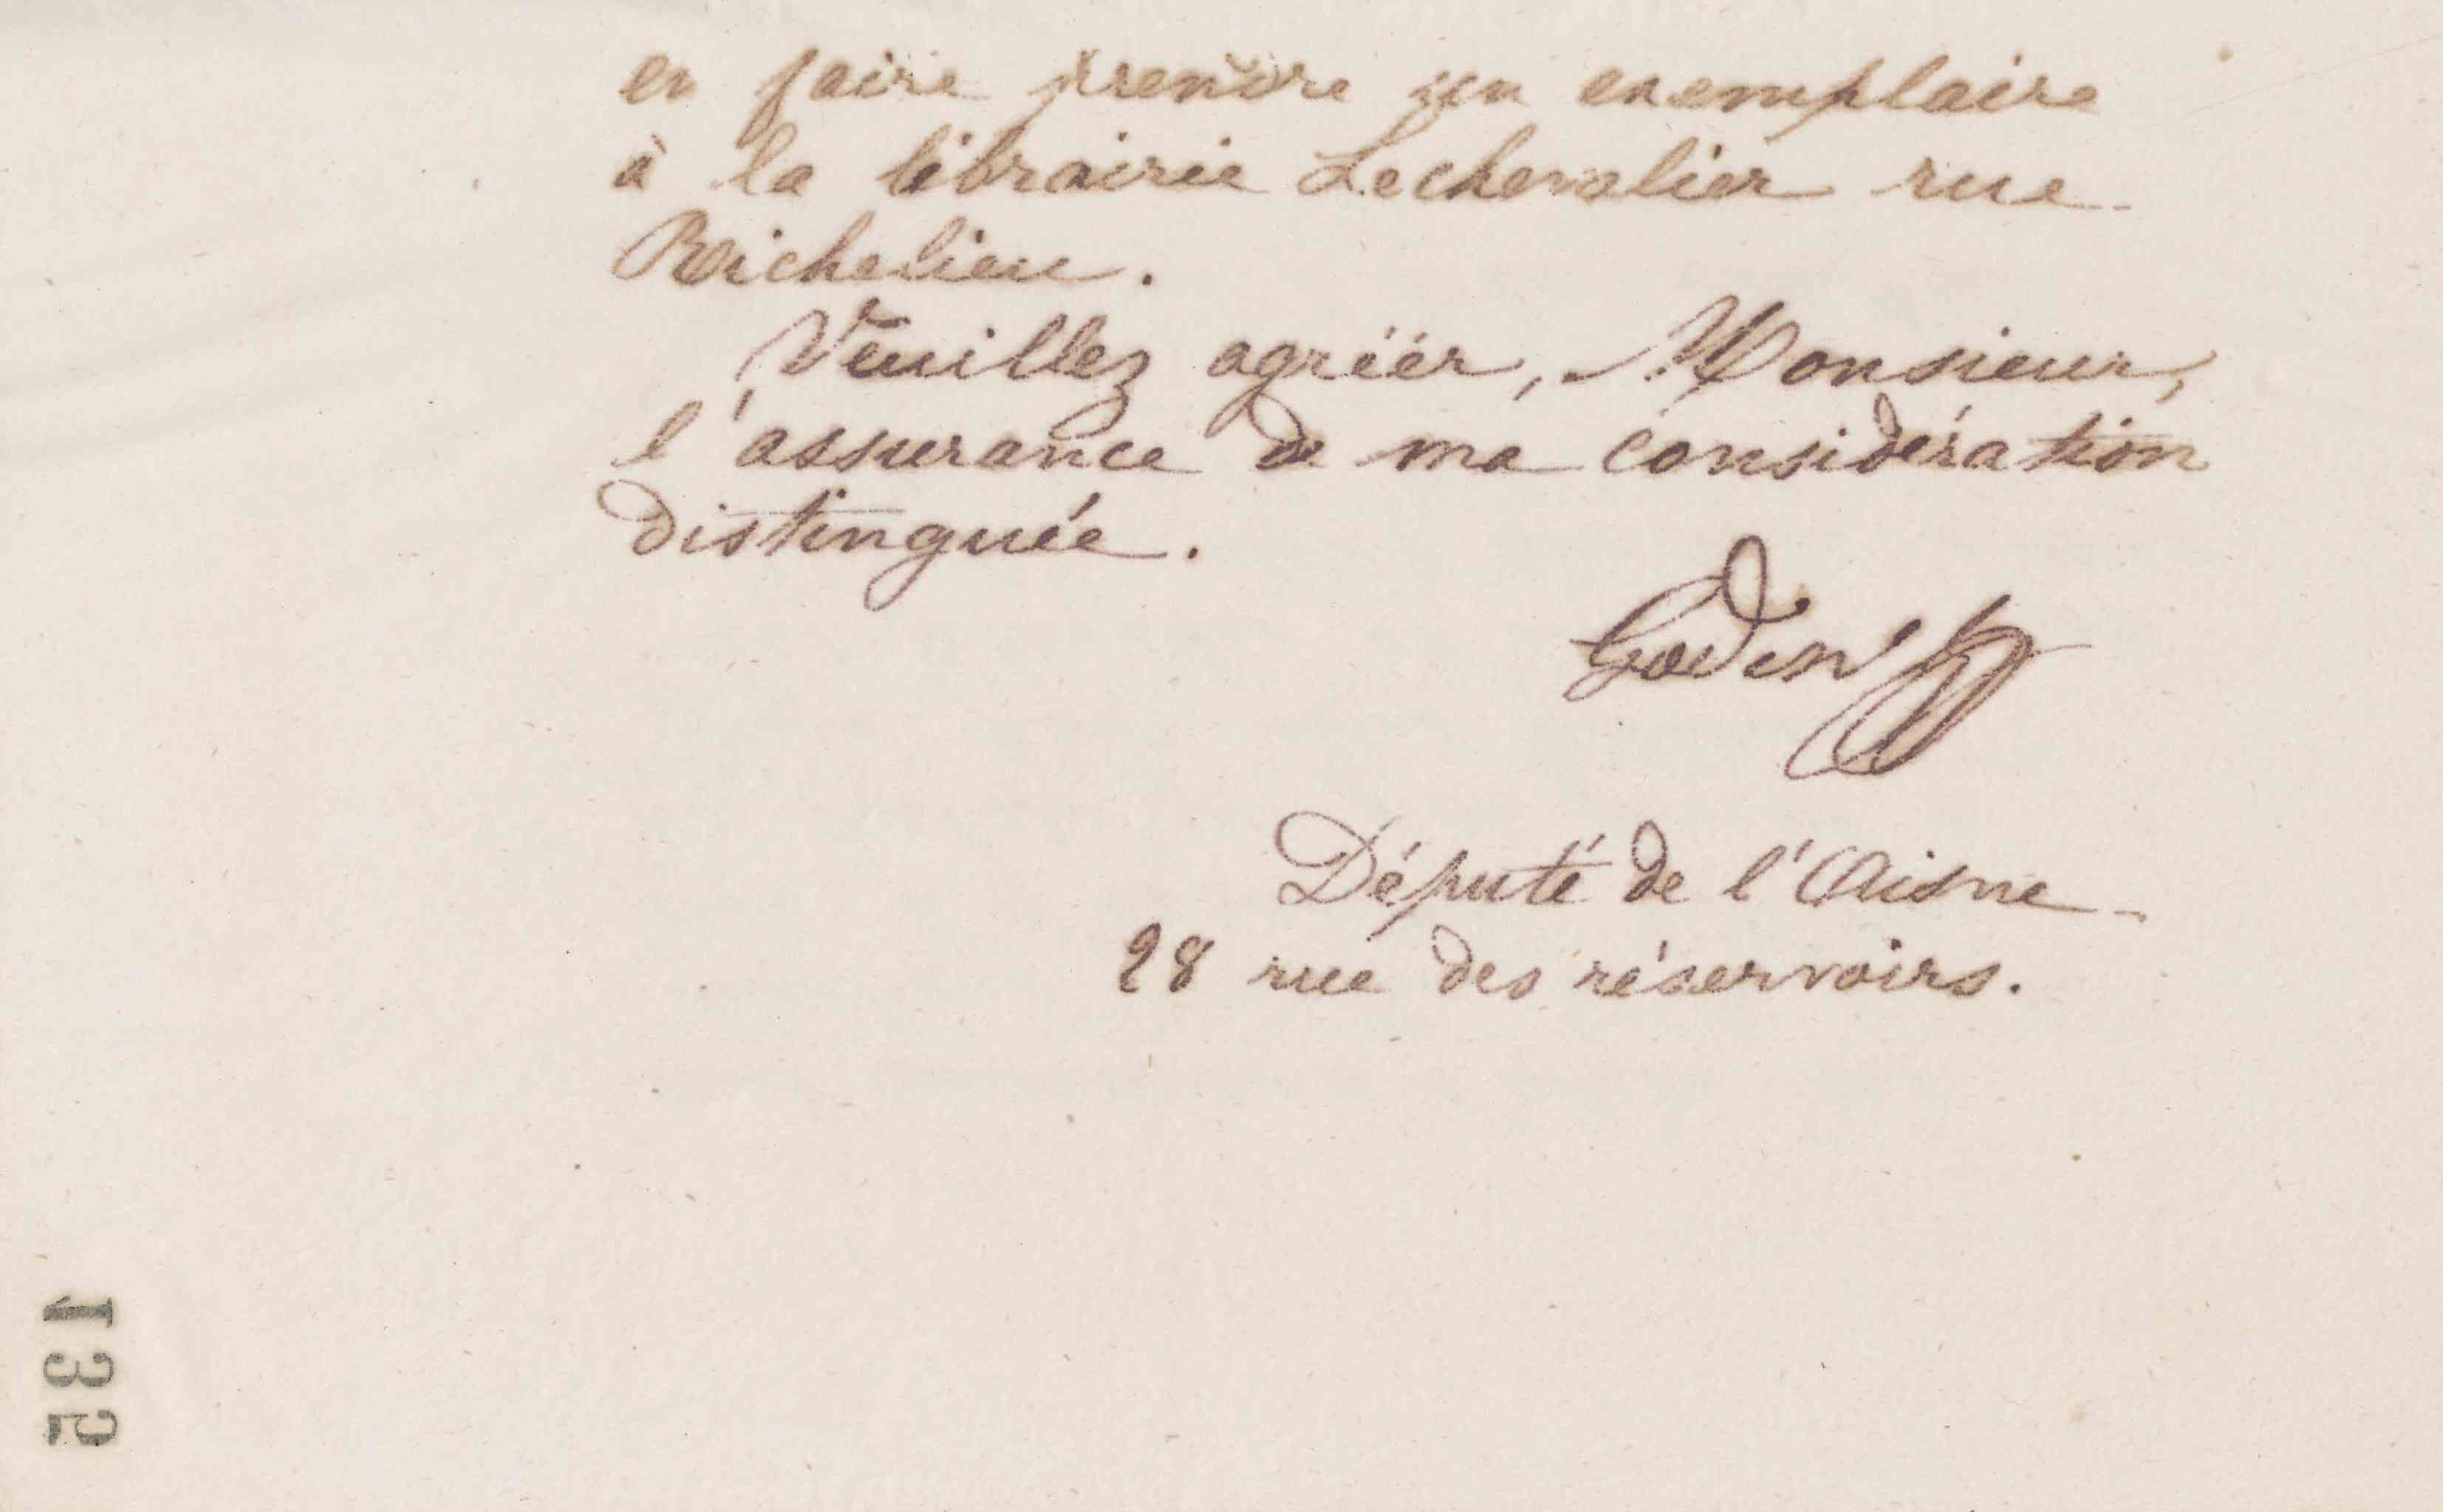 en faire prendre un exemplaire
à la librairie Lechevalier rue
Richelieu.
Veuillez agréer, Monsieur,
l'assurance de ma considération
distinguée.
Godin
Député de l'Aisne
28 rue des réservoirs.
132